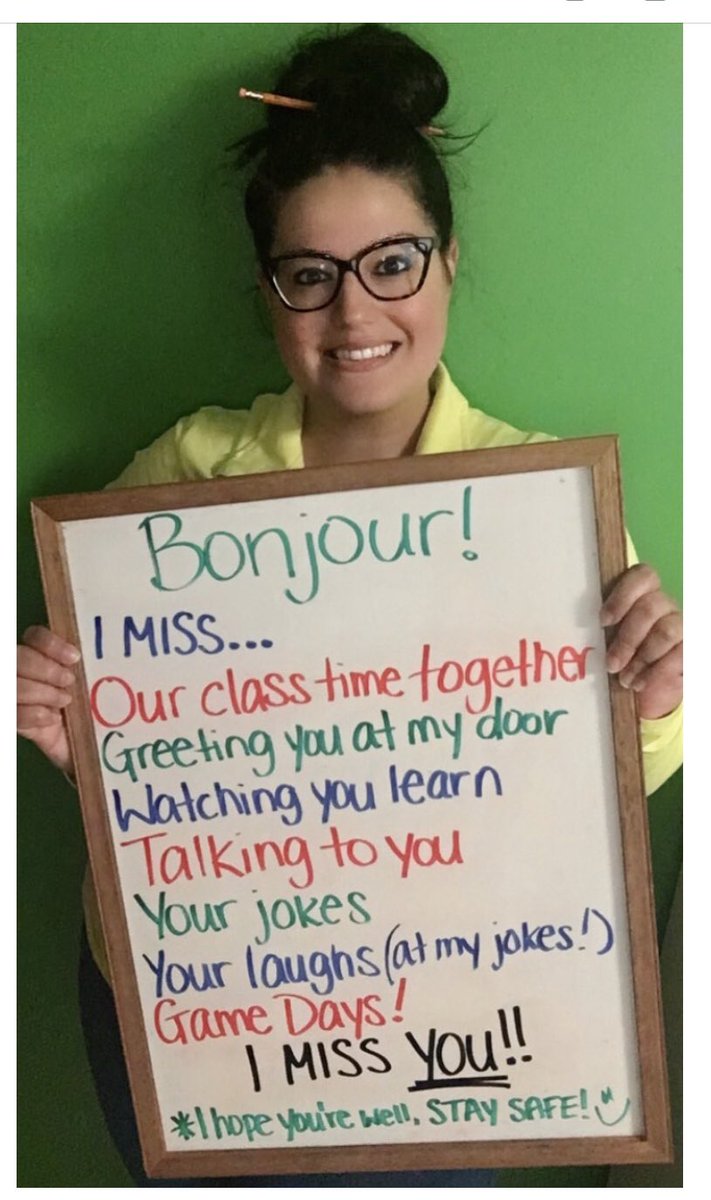 Bonjour!
I MISS...
Our class time together
Greeting you at my door
Watching you learn
Talking to you
Your jokes
Your laughs (at my jokes!)
Game Days!
I MISS YOU!!
*I hope you're well, STAY SAFE!